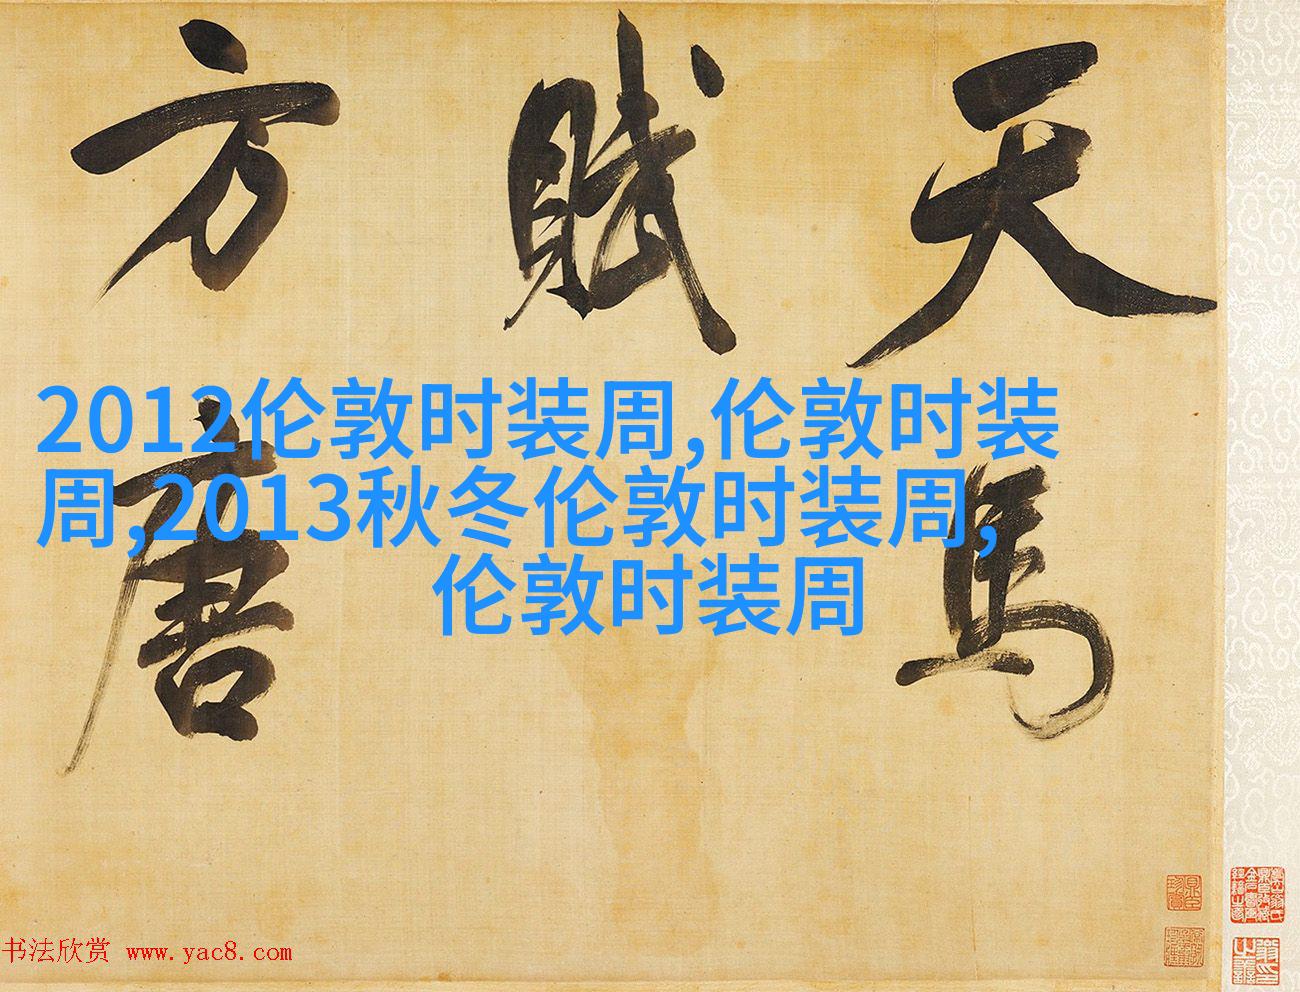 天馬
賦
方唐
2012伦敦时装周,伦敦时装
周,2013秋冬伦敦时装周,
伦敦时装周
书法欣赏 www.yac8.com